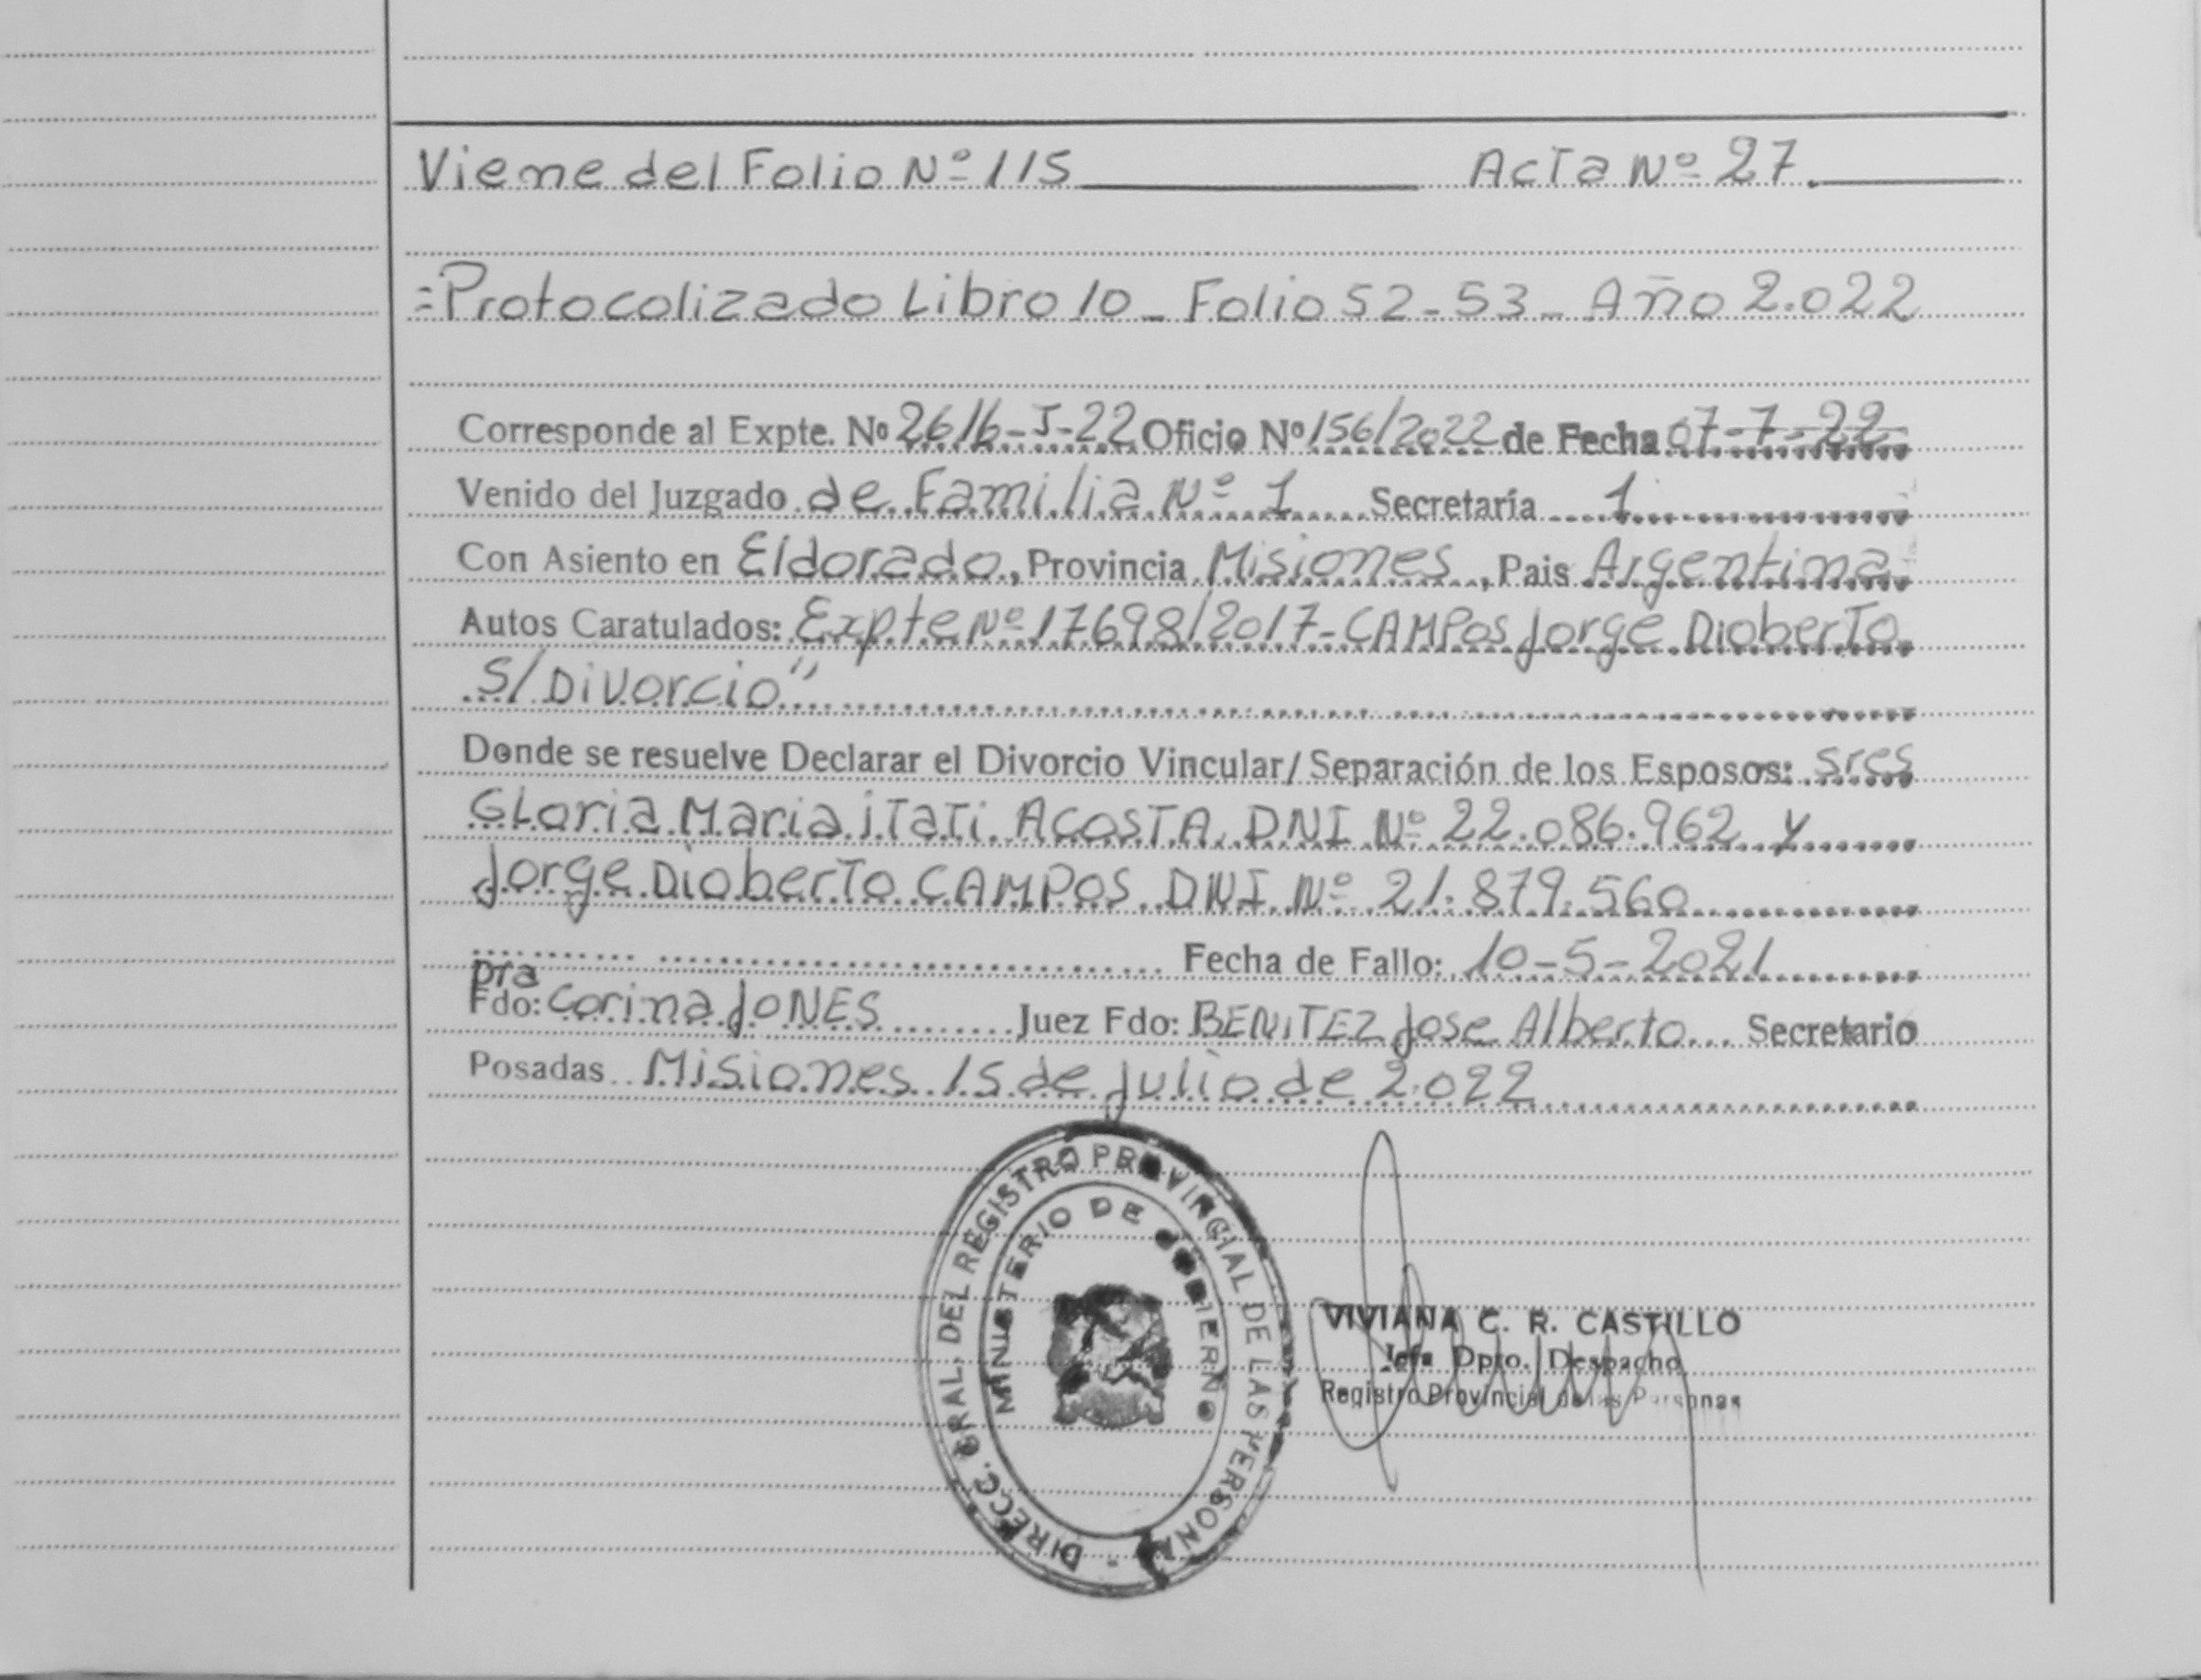 Viene del Folio Nº 115 Acta Nº 27.
=Protocolizado Libro 10 - Folio 52-53 - Año 2.022
Corresponde al Expte. Nº 2616-J-22 Oficio Nº 156/2022 de Fecha 07-7-22
Venido del Juzgado de Familia Nº 1 Secretaría 1
Con Asiento en Eldorado, Provincia Misiones, Pais Argentina
Autos Caratulados: Expte Nº 17698/2017-CAMPOS Jorge Dioberto
S/Divorcio"
Donde se resuelve Declarar el Divorcio Vincular/Separación de los Esposos: sres
Gloria Maria iTaTi ACOSTA DNI Nº 22.086.962 y
Jorge Dioberto CAMPOS DNI Nº 21.879.560
Fecha de Fallo: 10-5-2021
Dra
Fdo: Corina JONES Juez Fdo: BENITEZ Jose Alberto Secretario
Posadas Misiones 15 de Julio de 2.022
DIRECC. GRAL. DEL REGISTRO PROVINCIAL DE LAS PERSONAS
MINISTERIO DE GOBIERNO
VIVIANA C. R. CASTILLO
Jefa Dpto. Despacho
Registro Provincial de las Personas